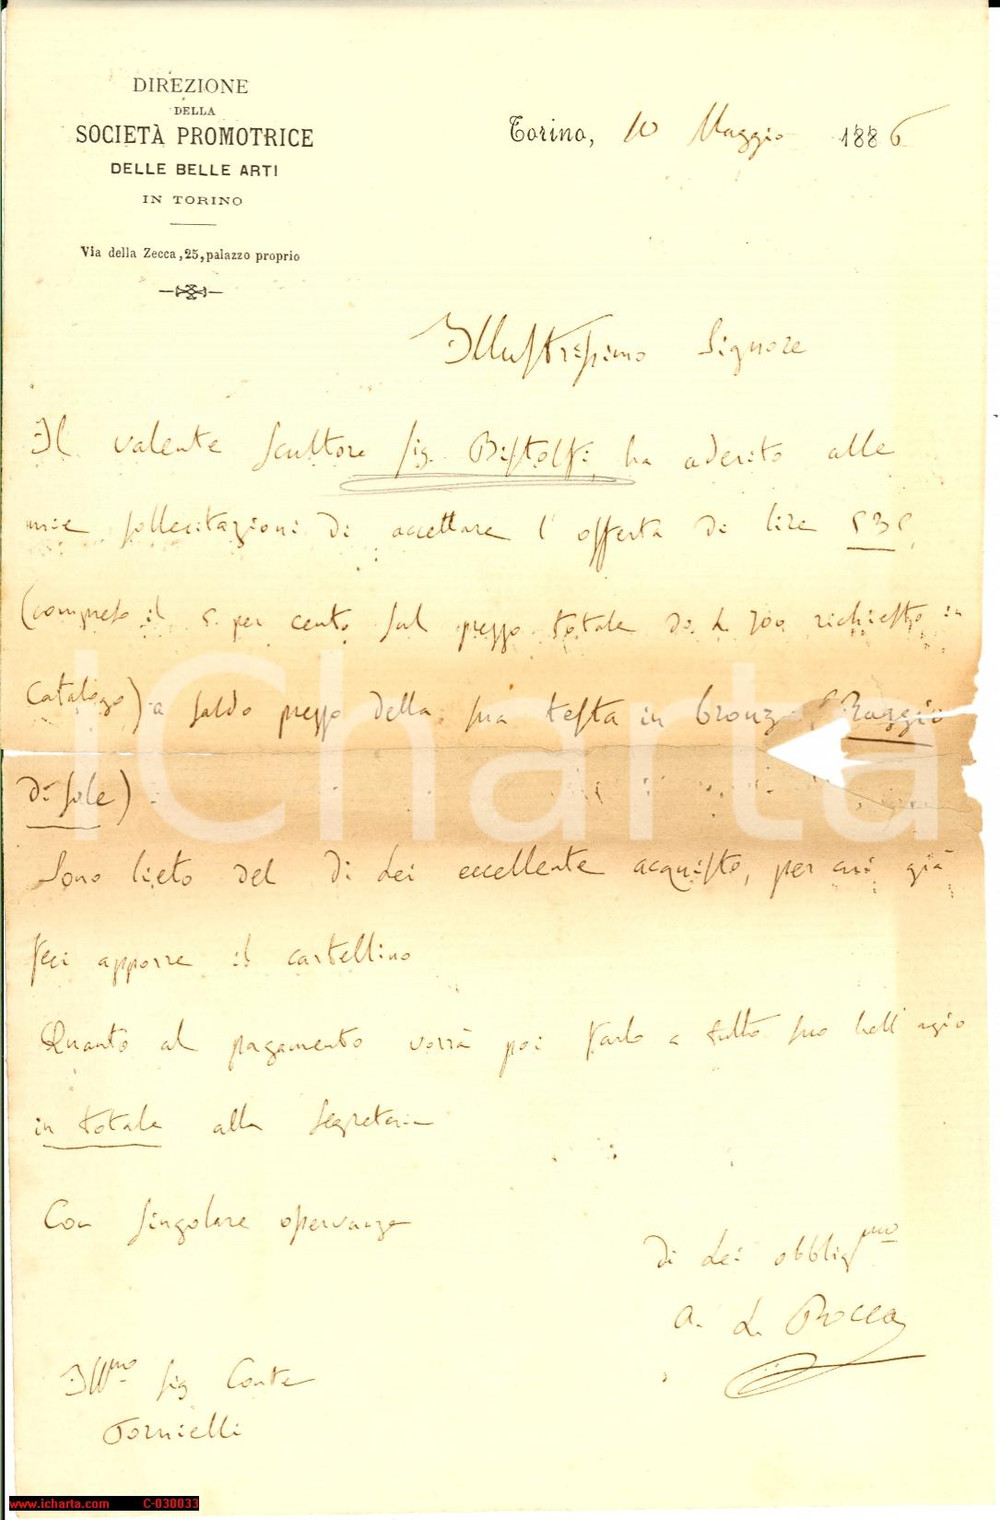 DIREZIONE
DELLA
SOCIETÀ PROMOTRICE
DELLE BELLE ARTI
IN TORINO
Via della Zecca, 25, palazzo proprio
Torino, 10 Maggio 1886
Illustrissimo Signore
Il valente scultore sig. Bistolfi ha aderito alle
mie sollecitazioni di accettare l'offerta di lire 535
(compreso il 5 per cento sul prezzo totale di L 700 richiesto in
Catalogo) a saldo prezzo della sua testa in bronzo (Raggio
di sole)
Sono lieto del di Lei eccellente acquisto, per cui già
feci apporre il cartellino
Quanto al pagamento vorrà poi farlo a tutto suo bell'agio
in totale alla segreteria
Con singolare osservanza
di Lei obbligmo
A. L. Rocca
Illmo sig Conte
Tornielli
iCharta
www.icharta.com C-030033